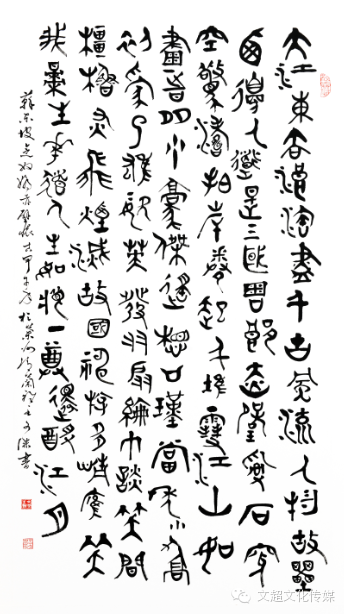 大江東去浪淘盡千古風流人物故壘
西邊人道是三國周郎赤壁亂石穿
空驚濤拍岸卷起千堆雪江山如
畫一時多少豪傑遙想公瑾當年小喬
初嫁了雄姿英發羽扇綸巾談笑間
檣櫓灰飛煙滅故國神游多情應笑
我早生華髮人生如夢一尊還酹江月
蘇東坡念奴嬌赤壁懷古甲午
文超文化传媒